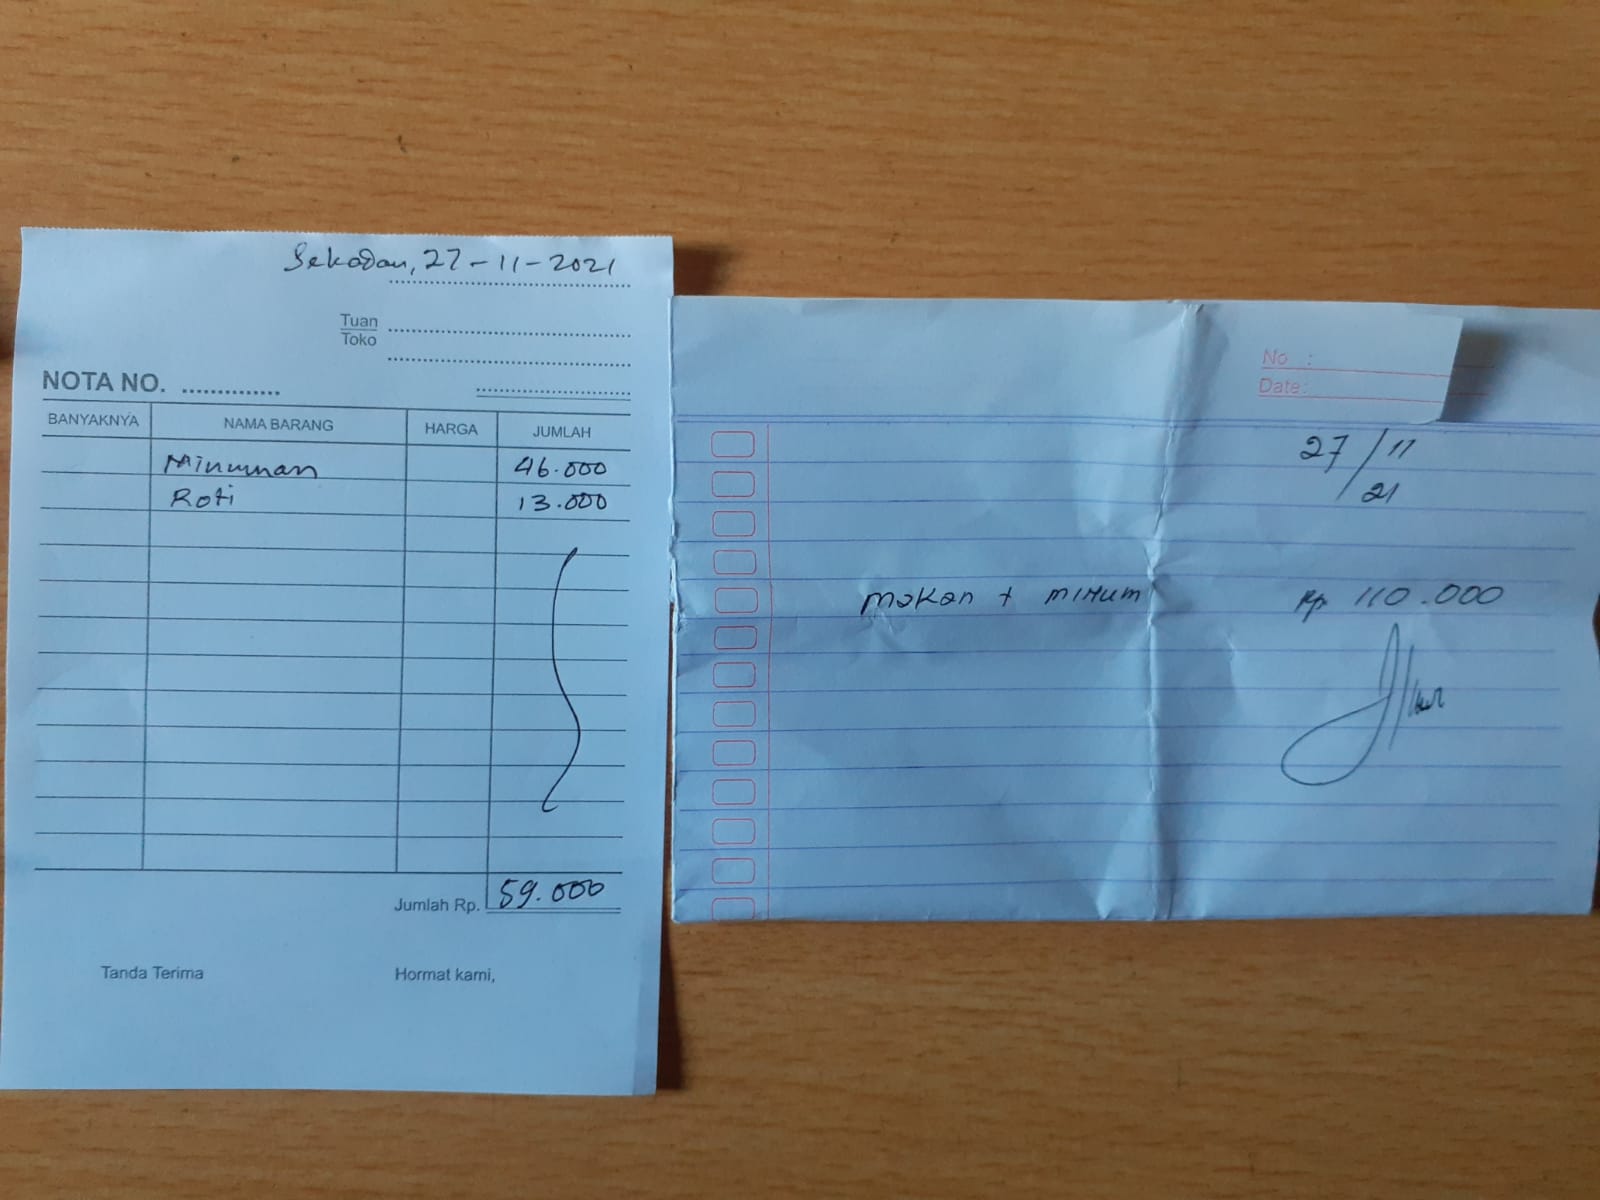 Sekadau, 27-11-2021
Tuan
Toko
NOTA NO.
BANYAKNYA NAMA BARANG HARGA JUMLAH
Minuman 46.000
Roti 13.000
Jumlah Rp. 59.000
Tanda Terima Hormat kami,
No :
Date:
27/11
21
makan + minum Rp 110.000